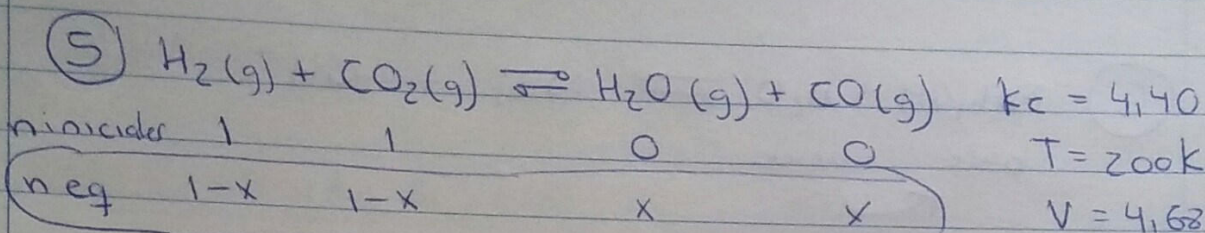 5 H₂(g) + CO₂(g) ⇌ H₂O(g) + CO(g) Kc = 4,40
1 1 0 0 T = 200K
neq 1-x 1-x x x V = 4,68